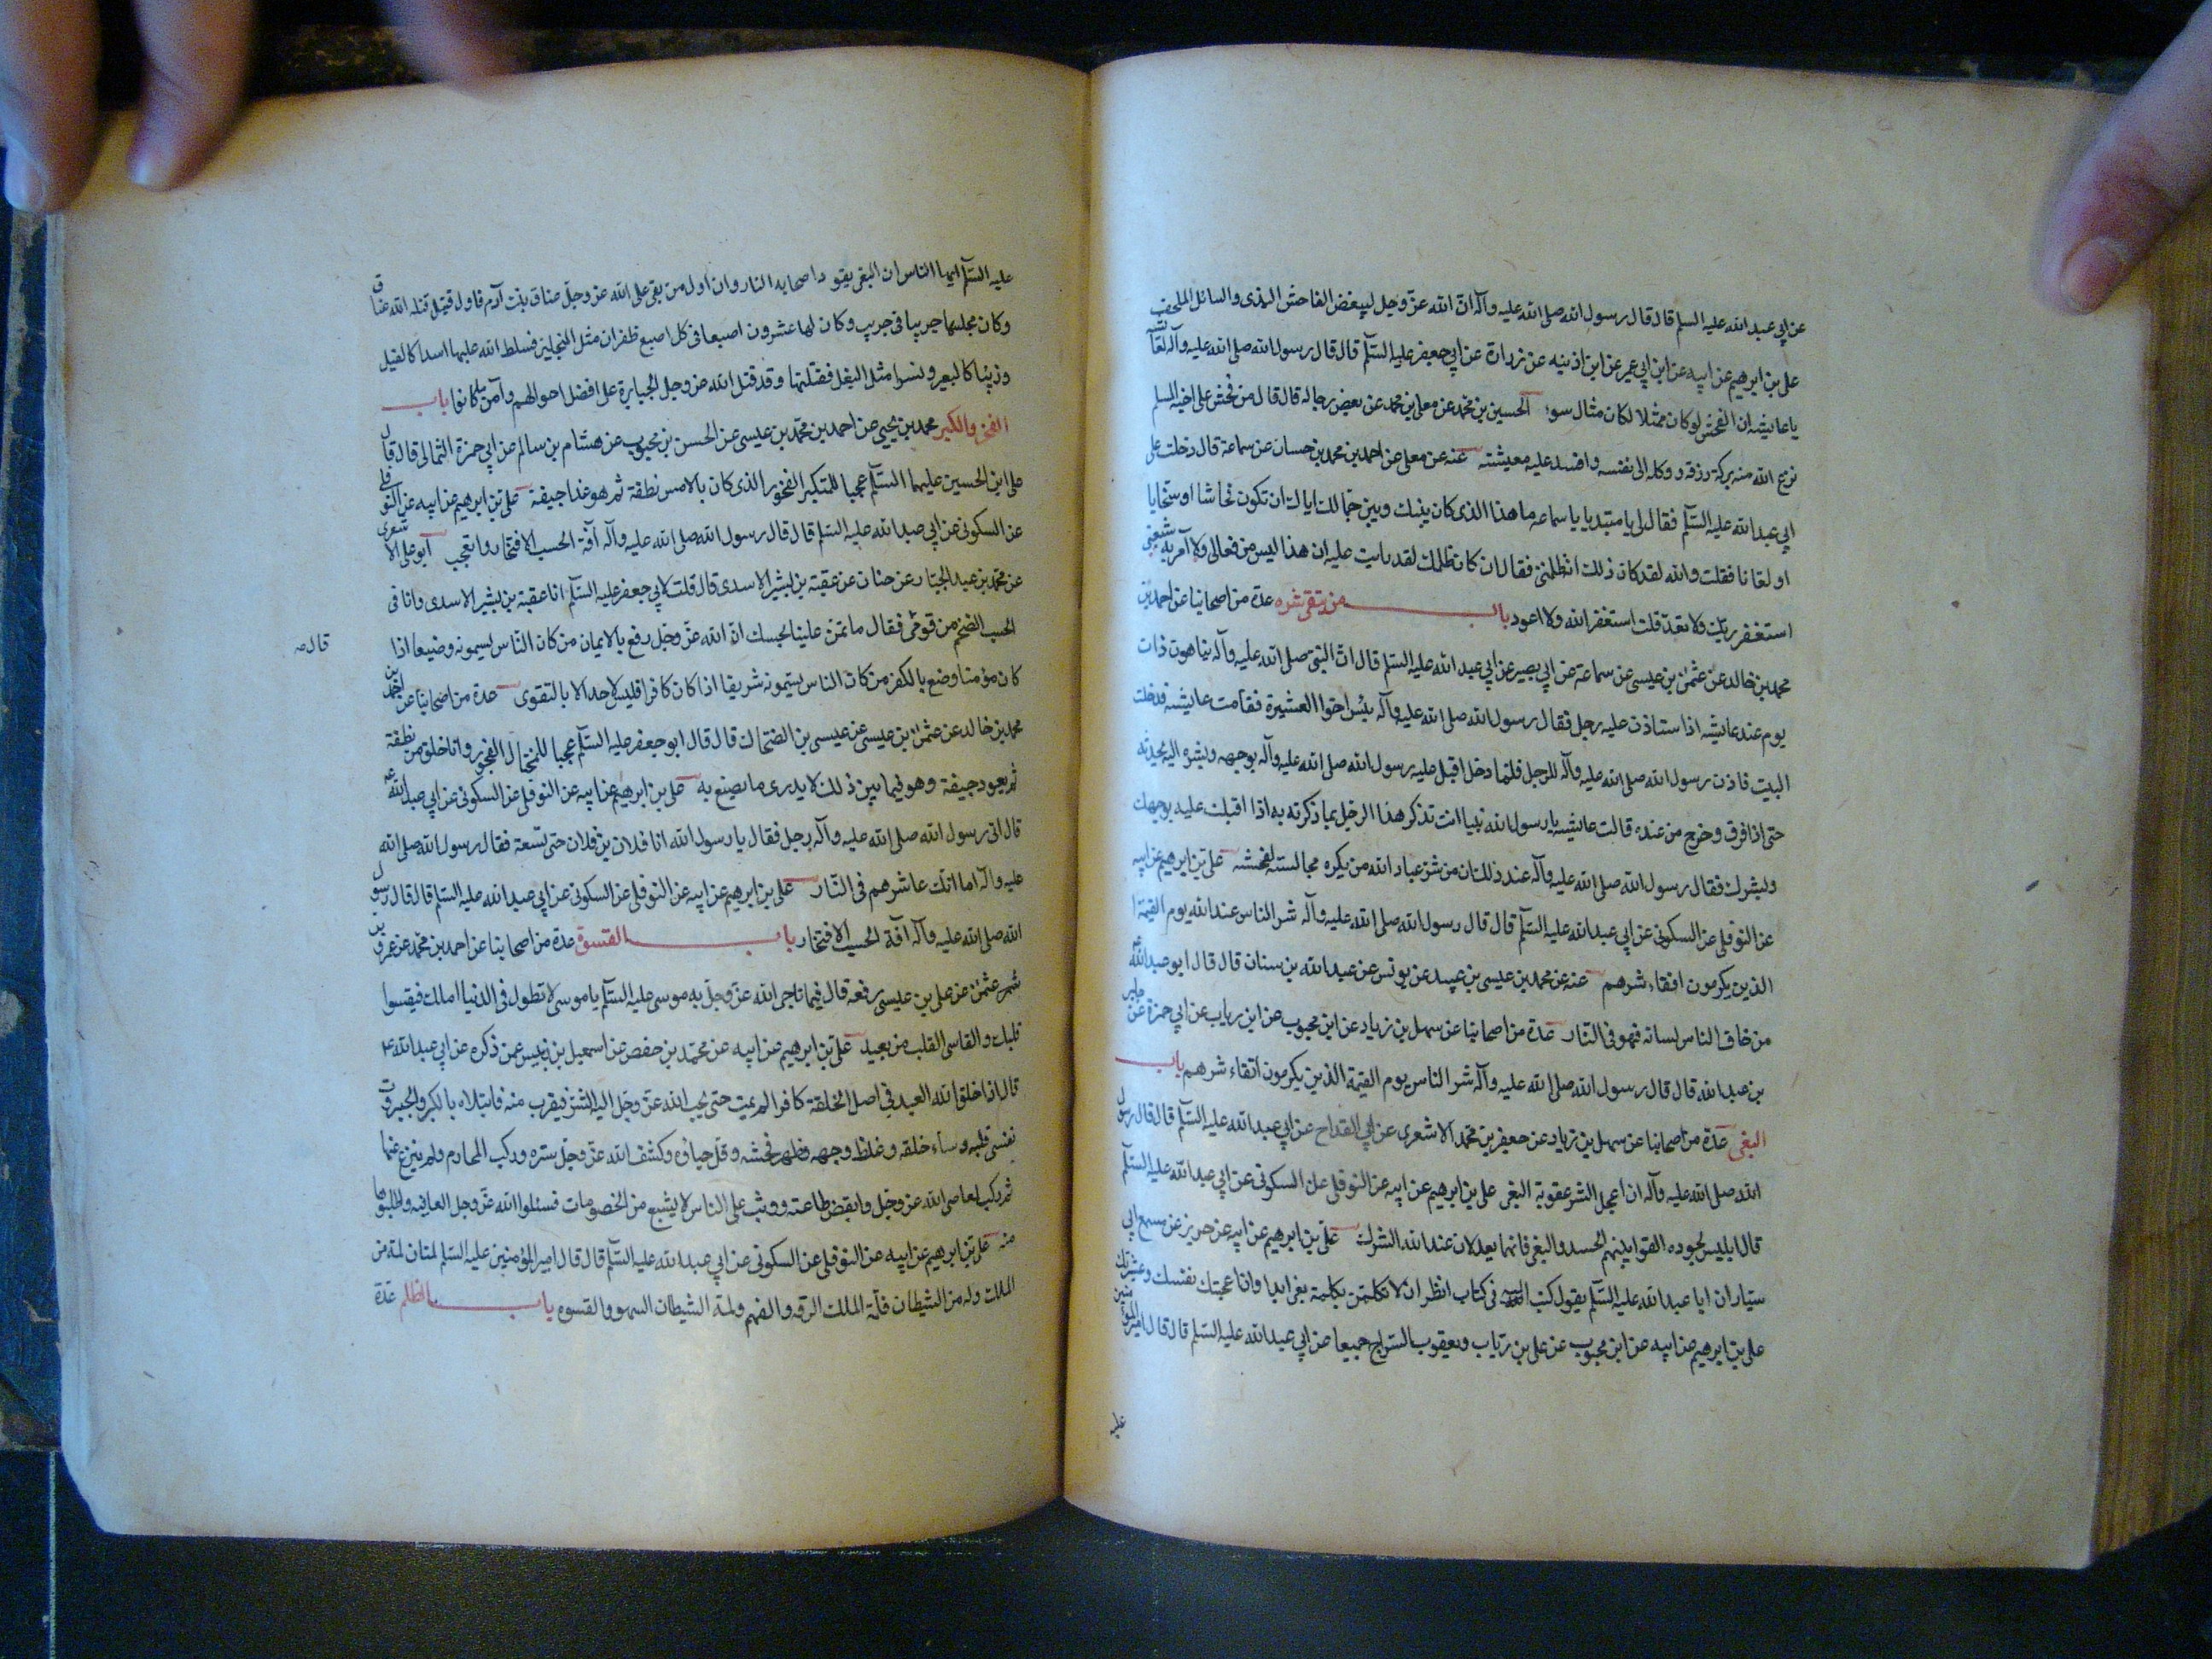 عن ابي عبد الله عليه السلم قال قال رسول الله صلى الله عليه وآله ان الله عز وجل ليبغض الفاحش البذي والسائل الملحف
على بن ابرهيم عن ابيه عن ابن ابي عمير عن ابن اذينه عن زرارة عن ابي جعفر عليه السلم قال قال رسول الله صلى الله عليه وآله لعائشة
يا عايشه ان الفحش لو كان ممثلا لكان مثال سوء الحسين بن محمد عن معلى بن محمد عن بعض رجاله قال قال من فحش على اخيه المسلم
نزع الله منه بركة رزقه ووكله الى نفسه وافسد عليه معيشته عنه عن معلى عن احمد بن محمد بن حسان عن سماعة قال دخلت على
ابي عبد الله عليه السلم فقال لي يا مبتديا يا سماعه ما هذا الذي كان بينك وبين جمالك اياك ان تكون فحاشا او سخابا
او لعانا فقلت والله لقد كان ذلك انه ظلمني فقال ان كان ظلمك لقد ربيت عليه ان هذا ليس من فعالى ولا آمر به شيعتي
استغفر ربك ولا تعد قلت استغفر الله ولا اعود باب من يتقى شره عدة من اصحابنا عن احمد بن
محمد بن خالد عن عثمن بن عيسى عن سماعة عن ابي بصير عن ابي عبد الله عليه السلم قال ان النبي صلى الله عليه وآله بينا هو ذات
يوم عند عايشه اذا ستاذن عليه رجل فقال رسول الله صلى الله عليه وآله بئس اخوا العشيرة فقامت عايشه فدخلت
البيت فاذن رسول الله صلى الله عليه وآله للرجل فلما دخل اقبل عليه رسول الله صلى الله عليه وآله بوجهه وبشره اليه يحدثه
حتى اذا فرق وخرج من عنده قالت عايشه يا رسول الله بينا انت تذكر هذا الرجل بما ذكرته به اذا اقبلت عليه بوجهك
وبشرك فقال رسول الله صلى الله عليه وآله عند ذلك ان من شر عباد الله من يكره مجالسته لفحشه على بن ابرهيم عن ابيه
عن النوفلى عن السكونى عن ابي عبد الله عليه السلم قال قال رسول الله صلى الله عليه وآله شر الناس عند الله يوم القيمة
الذين يكرمون اتقاء شرهم عنه عن محمد بن عيسى بن عبيد عن يونس عن عبد الله بن سنان قال قال ابو عبد الله
من خاف الناس لسانه فهو في النار عدة من اصحابنا عن سهل بن زياد عن ابن محبوب عن ابن رياب عن ابي حمزة عن جابر
بن عبد الله قال قال رسول الله صلى الله عليه وآله شر الناس يوم القيمة الذين يكرمون اتقاء شرهم باب
البغى عدة من اصحابنا عن سهل بن زياد عن جعفر بن محمد الاشعرى عن ابي القداح عن ابي عبد الله عليه السلم قال قال رسول
الله صلى الله عليه وآله ان اعجل الشر عقوبة البغى على بن ابرهيم عن ابيه عن النوفلى عن السكونى عن ابي عبد الله عليه السلم
قال ابليس لجنوده القوا بينهم الحسد والبغى فانهما يعدلان عند الله الشرك على بن ابرهيم عن ابيه عن حريز عن مسمع ابي
سيار ان ابا عبد الله عليه السلم يقول كتب اليه في كتاب انظر ان لا تكلمن بكلمة بغى ابدا وان اعجبتك نفسك وعشيرتك
على بن ابرهيم عن ابيه عن ابن محبوب عن على بن رياب ويعقوب السراج جميعا عن ابي عبد الله عليه السلم قال قال امير المؤمنين
عليه
عليه السلم ايها الناس ان البغى يقود اصحابه النار وان اول من بغى على الله عز وجل عناق بنت آدم فاول قتيل قتله الله عناق
وكان مجلسها جريبا في جريب وكان لها عشرون اصبعا في كل اصبع ظفران مثل المنجلين فسلط الله عليها اسدا كالفيل
وذئبا كالبعير ونسرا مثل البغل فقتلتها وقد قتل الله عز وجل الجبابرة على افضل احوالهم وآمن ما كانوا باب
الفخر والكبر محمد بن يحيى عن احمد بن محمد بن عيسى عن الحسن بن محبوب عن هشام بن سالم عن ابي حمزة الثمالى قال قال
على ابن الحسين عليهما السلم عجبا للمتكبر الفخور الذي كان بالامس نطفة ثم هو غدا جيفة على بن ابرهيم عن ابيه عن النوفلى
عن السكونى عن ابي عبد الله عليه السلم قال قال رسول الله صلى الله عليه وآله آفة الحسب الافتخار والعجب ابو على الاشعرى
عن محمد بن عبد الجبار عن حنان عن عقبة بن بشير الاسدى قال قلت لابي جعفر عليه السلم انا عقبة بن بشير الاسدى وانا في
الحسب الضخم من قومى فقال ما تمن علينا بحسبك ان الله عز وجل رفع بالايمان من كان الناس يسمونه وضيعا اذا
قال مه
كان مؤمنا ووضع بالكفر من كان الناس يسمونه شريفا اذا كان كافرا فليس لاحد الا بالتقوى عدة من اصحابنا عن احمد بن
محمد بن خالد عن عثمن بن عيسى عن عيسى بن الضحاك قال قال ابو جعفر عليه السلم عجبا للمختال الفخور وانما خلق من نطفة
ثم يعود جيفة وهو فيما بين ذلك لا يدرى ما يصنع به على بن ابرهيم عن ابيه عن النوفلى عن السكونى عن ابي عبد الله
قال اتى رسول الله صلى الله عليه وآله رجل فقال يا رسول الله انا فلان بن فلان حتى تسعة فقال رسول الله صلى الله
عليه وآله اما انك عاشرهم في النار على بن ابرهيم عن ابيه عن النوفلى عن السكونى عن ابي عبد الله عليه السلم قال قال رسول
الله صلى الله عليه وآله آفة الحسب الافتخار باب القسوة عدة من اصحابنا عن احمد بن محمد عن عمرو بن
عثمن عن على بن عيسى رفعه قال فيما ناجى الله عز وجل به موسى عليه السلم يا موسى لا تطول في الدنيا املك فيقسوا
قلبك والقاسى القلب من بعيد على بن ابرهيم عن ابيه عن محمد بن حفص عن اسمعيل بن دبيس عمن ذكره عن ابي عبد الله ع
قال اذا خلق الله العبد في اصل الخلقة كافرا لم يمت حتى يحبب الله عز وجل اليه الشر فيقرب منه فابتلاه بالكبر والجبروت
فقسى قلبه وساء خلقه وغلظ وجهه وظهر فحشه وقل حياؤه وكشف الله عز وجل ستره وركب المحارم ولم ينزع عنها
ثم ركب معاصى الله عز وجل وابغض طاعته ووثب على الناس لا يشبع من الخصومات فسئلوا الله عز وجل العافيه واطلبوها
منه على بن ابرهيم عن ابيه عن النوفلى عن السكونى عن ابي عبد الله عليه السلم قال قال امير المؤمنين عليه السلم لمتان لمة من
الملك ولمة من الشيطان فلمة الملك الرقه والفهم ولمة الشيطان السهو والقسوه باب الظلم عدة